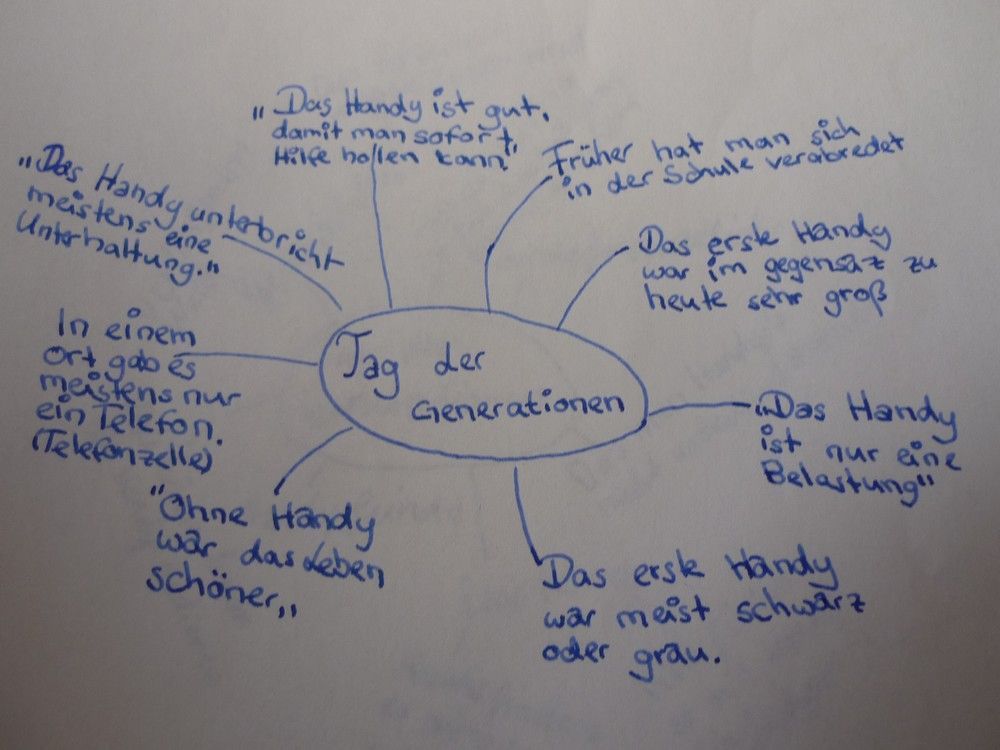 "Das Handy ist gut,
damit man sofort
Hilfe hollen kann"
Früher hat man sich
in der Schule verabredet
"Das Handy unterbricht
meistens eine
Unterhaltung."
Das erste Handy
war im gegensaz zu
heute sehr groß
In einem
Ort gab es
meistens nur
ein Telefon.
(Telefonzelle)
Tag der
Generationen
"Das Handy
ist nur eine
Belastung"
"Ohne Handy
wär das Leben
schöner„
Das erste Handy
war meist schwarz
oder grau.